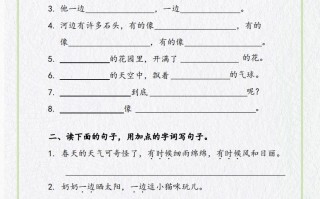 3. 他一边____________,一边____________。
4. 河边有许多石头,有的像____________,有的
像____________,有的像____________。
5. ____________的花园里,开满了____________的花。
6. ____________的天空中,飘着____________的气球。
7. ____________到底____________呢?
8. ____________像____________。
二、读下面的句子,用加点的字词写句子。
1. 春天的天气可奇怪了,有时候细雨绵绵,有时候风和日丽。
2. 奶奶一边晒太阳,一边逗小猫咪玩儿。